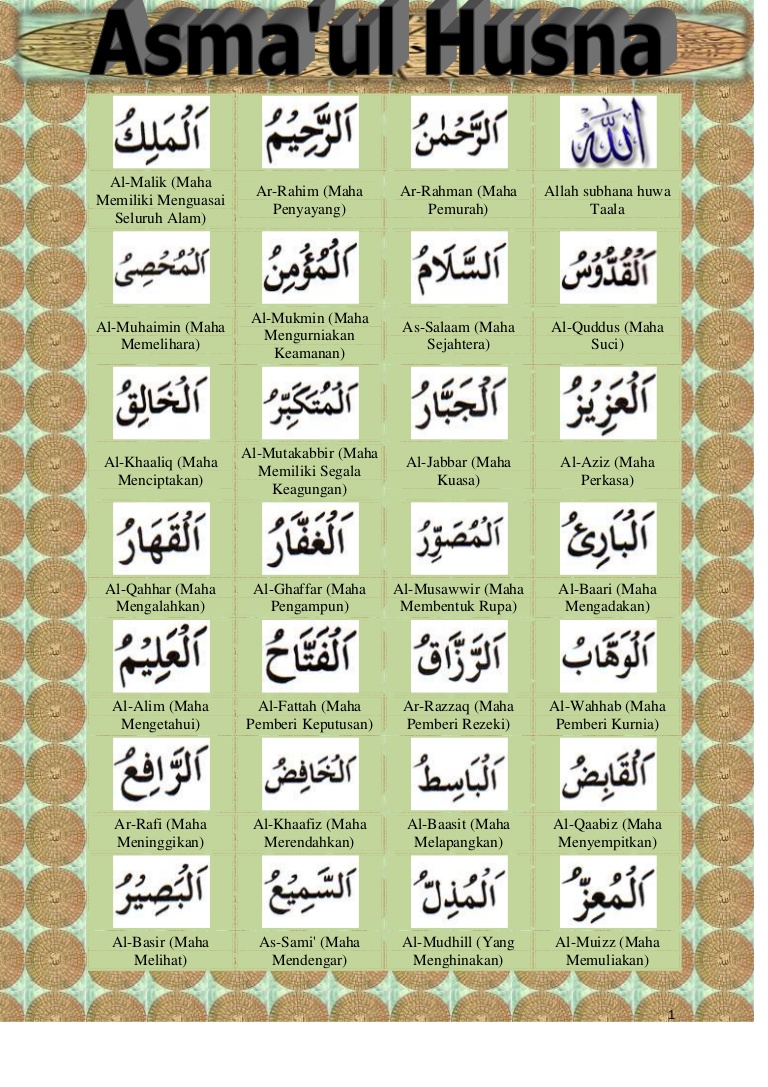 Asma'ul Husna
اللّٰهُ
Allah subhana huwa
Taala
اَلرَّحْمٰنُ
Ar-Rahman (Maha
Pemurah)
اَلرَّحِيْمُ
Ar-Rahim (Maha
Penyayang)
اَلْمَلِكُ
Al-Malik (Maha
Memiliki Menguasai
Seluruh Alam)
اَلْقُدُّوْسُ
Al-Quddus (Maha
Suci)
اَلسَّلَامُ
As-Salaam (Maha
Sejahtera)
اَلْمُؤْمِنُ
Al-Mukmin (Maha
Mengurniakan
Keamanan)
اَلْمُحْصِىُ
Al-Muhaimin (Maha
Memelihara)
اَلْعَزِيْزُ
Al-Aziz (Maha
Perkasa)
اَلْجَبَّارُ
Al-Jabbar (Maha
Kuasa)
اَلْمُتَكَبِّرُ
Al-Mutakabbir (Maha
Memiliki Segala
Keagungan)
اَلْخَالِقُ
Al-Khaaliq (Maha
Menciptakan)
اَلْبَارِئُ
Al-Baari (Maha
Mengadakan)
اَلْمُصَوِّرُ
Al-Musawwir (Maha
Membentuk Rupa)
اَلْغَفَّارُ
Al-Ghaffar (Maha
Pengampun)
اَلْقَهَارُ
Al-Qahhar (Maha
Mengalahkan)
اَلْوَهَّابُ
Al-Wahhab (Maha
Pemberi Kurnia)
اَلرَّزَّاقُ
Ar-Razzaq (Maha
Pemberi Rezeki)
اَلْفَتَّاحُ
Al-Fattah (Maha
Pemberi Keputusan)
اَلْعَلِيْمُ
Al-Alim (Maha
Mengetahui)
اَلْقَابِضُ
Al-Qaabiz (Maha
Menyempitkan)
اَلْبَاسِطُ
Al-Baasit (Maha
Melapangkan)
اَلْخَافِضُ
Al-Khaafiz (Maha
Merendahkan)
اَلرَّافِعُ
Ar-Rafi (Maha
Meninggikan)
اَلْمُعِزُّ
Al-Muizz (Maha
Memuliakan)
اَلْمُذِلُّ
Al-Mudhill (Yang
Menghinakan)
اَلسَّمِيْعُ
As-Sami' (Maha
Mendengar)
اَلْبَصِيْرُ
Al-Basir (Maha
Melihat)
1